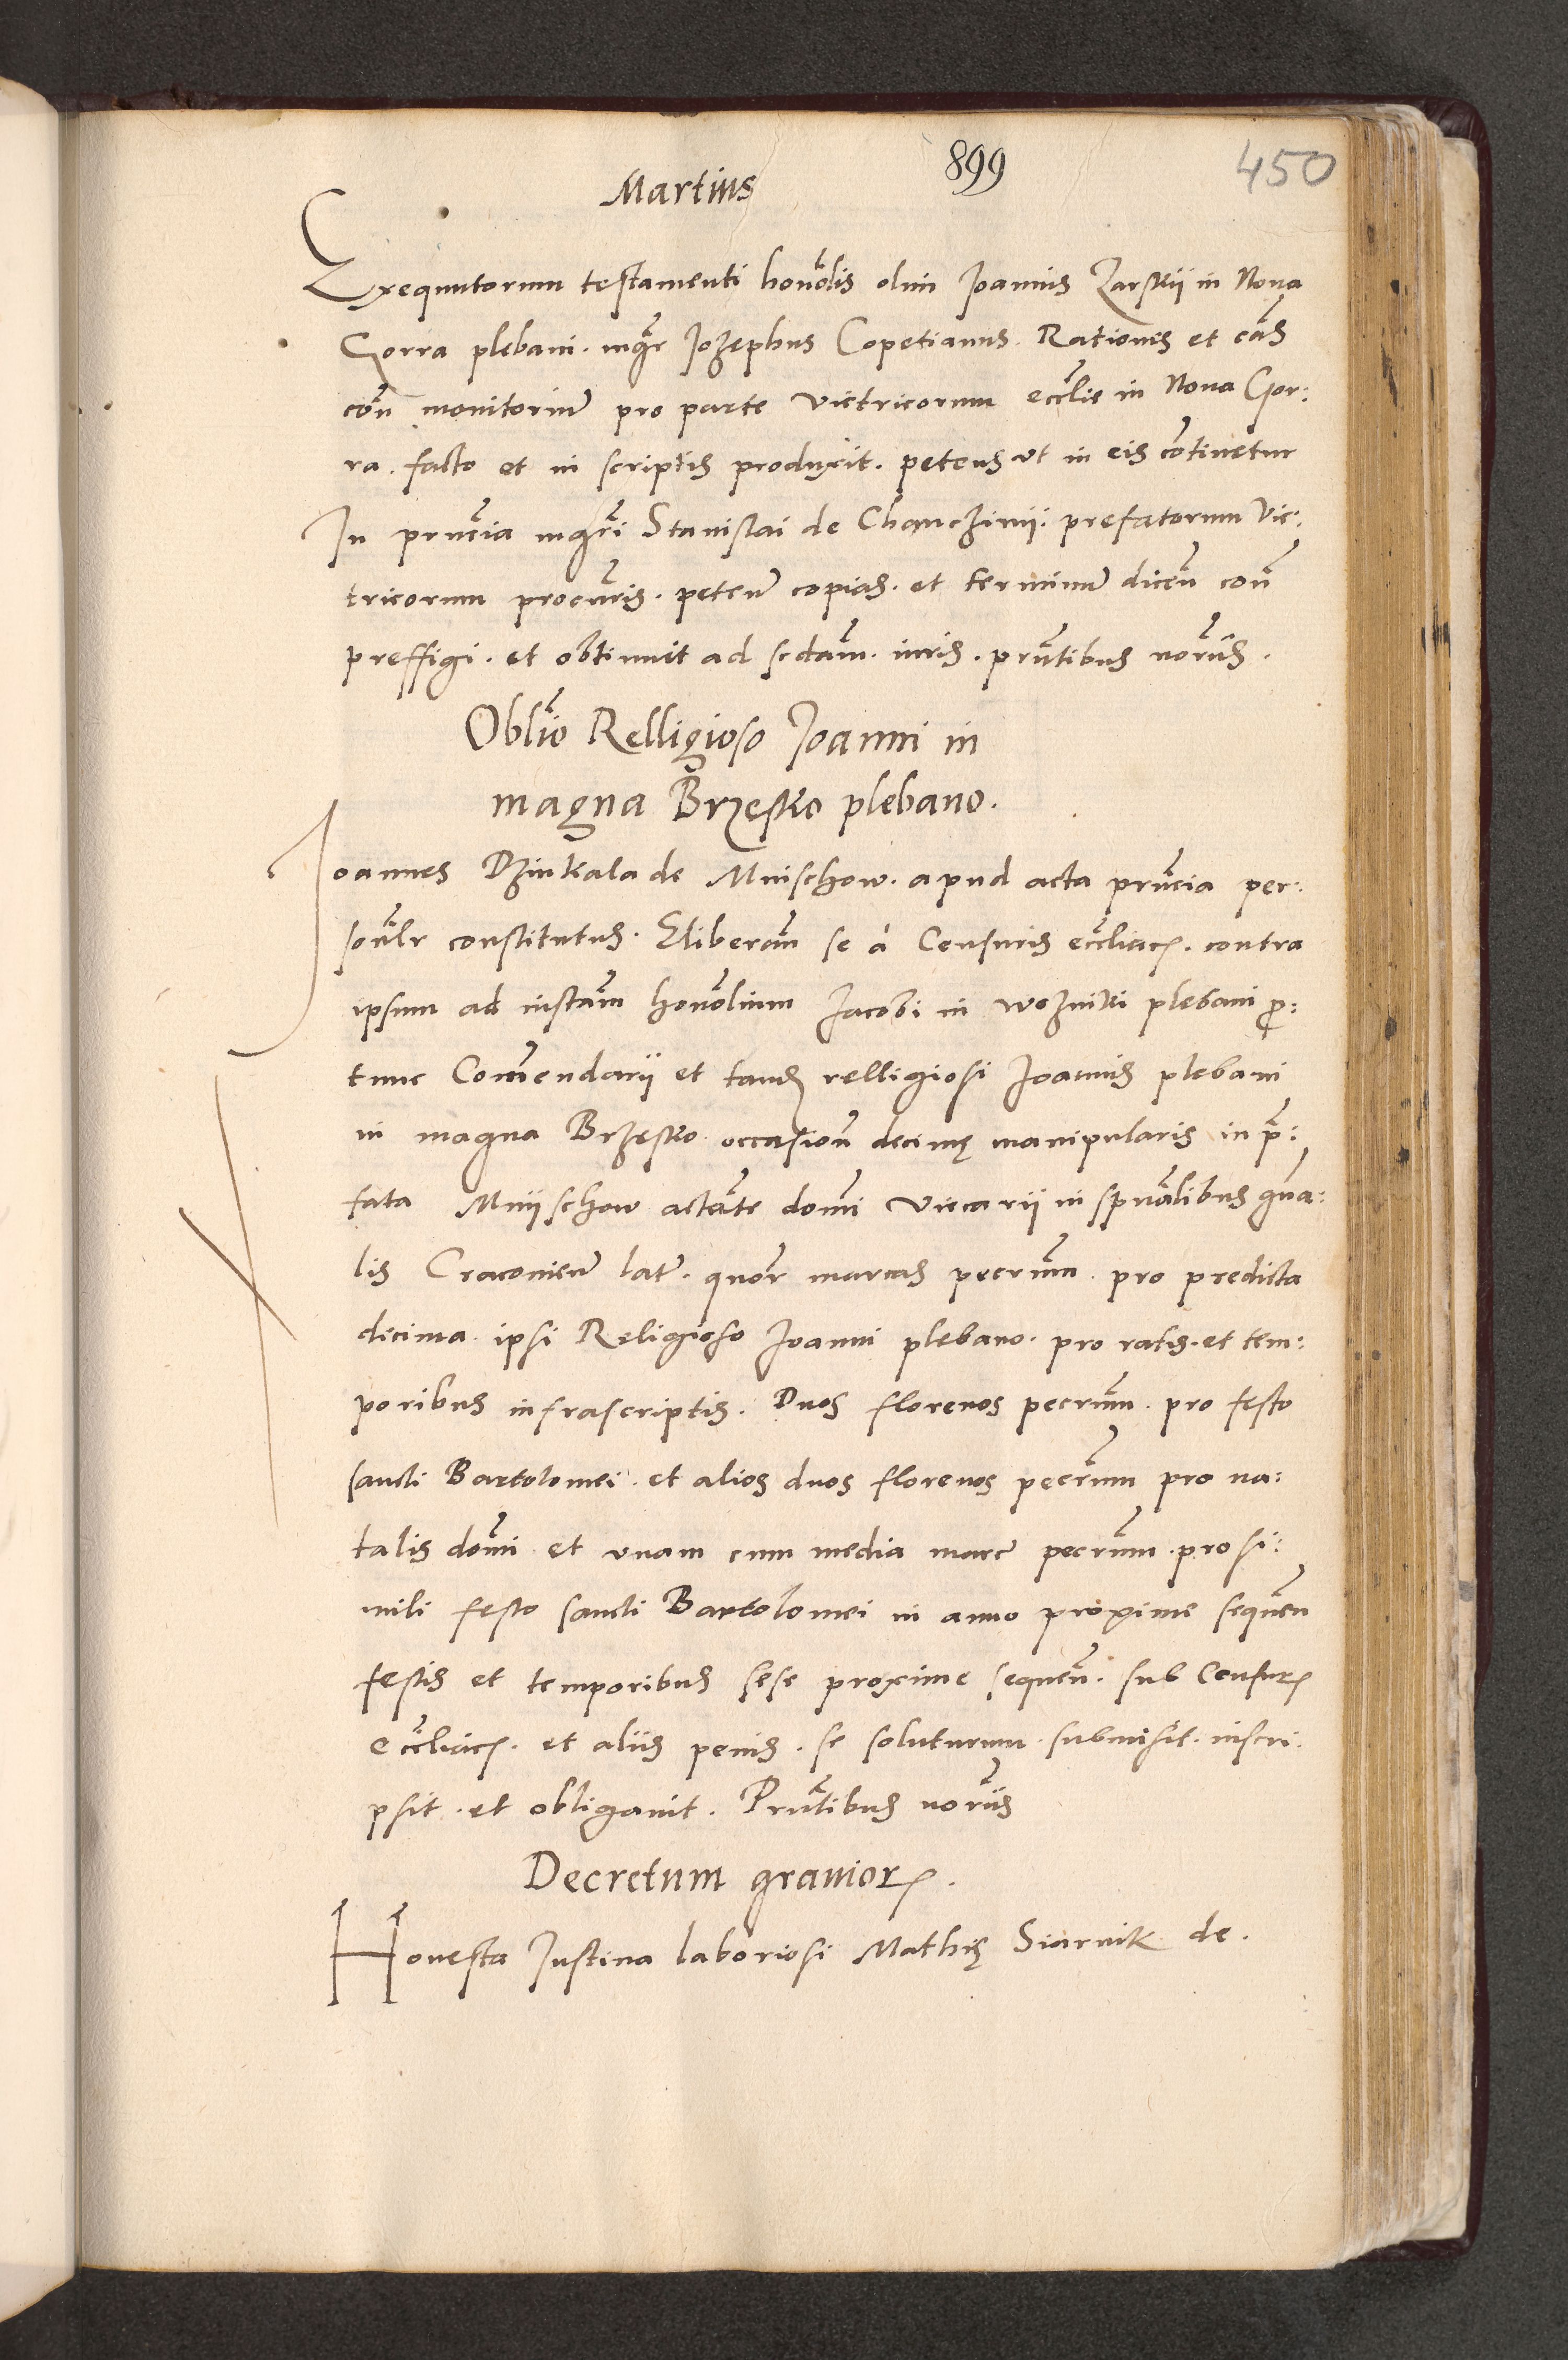 899
450
Martius
Exequutorum testamenti honōlis olim Joannis Zarskii in Noua
Gorra plebani. mgr̄ Jozephus Copetianus. Rationes et cās
con̄ monitoriūm pro parte victricorum eccl̄ie in Noua Gor:
ra. facto et in scriptis produxit. petens vt in eis cōntinetur
In prn̄cia mgrī Stanislai de Chanczinii. prefatorum vic:
tricorum procūris. peteñ copias. et terminum̄ diceñ con̄
preffigi. et obtinuit ad scdam̄. iuris. prn̄tibus norīis.
Obl̄io Relligioso Joanni in
magna Brzesko plebano.
Joannes Dzinkala de Mnischow. apud acta prn̄cia per:
son̄lr constitutus. Eliberan̄ se á Censuris eccl̄iac. contra
ipsum ad instan̄ honōlium Jacobi in Wozniki plebani p̄:
tunc Com̄mendarii et tand relligiosi Joannis plebani
in magna Brzesko occasion̄ decimę manipularis in p̄:
fata Mniischow actan̄te domī Vicarii in spūalibus gn̄a:
lis Cracouień lat̄. quōr marcas pecn̄m. pro predicta
dicima. ipsi Religioso Joanni plebano. pro ratis. et tem:
poribus infrascriptis. Duos florenos pecn̄m. pro festo
sancti Bartolomei. et alios duos florenos pecn̄m pro na:
talis domī et vnam cum media marc̄ pecn̄m. pro si:
mili festo sancti Bartolomei in anno proxime sequēn
festis et temporibus sese proxime sequen̄. sub Censur
eccl̄iac. et aliis penis. se soluturum. submisit. inscri.
psit. et obligauit. Prn̄tibus norīis
Decretum grauior.
Honesta Justina laboriosi Mathię Siarnik de.